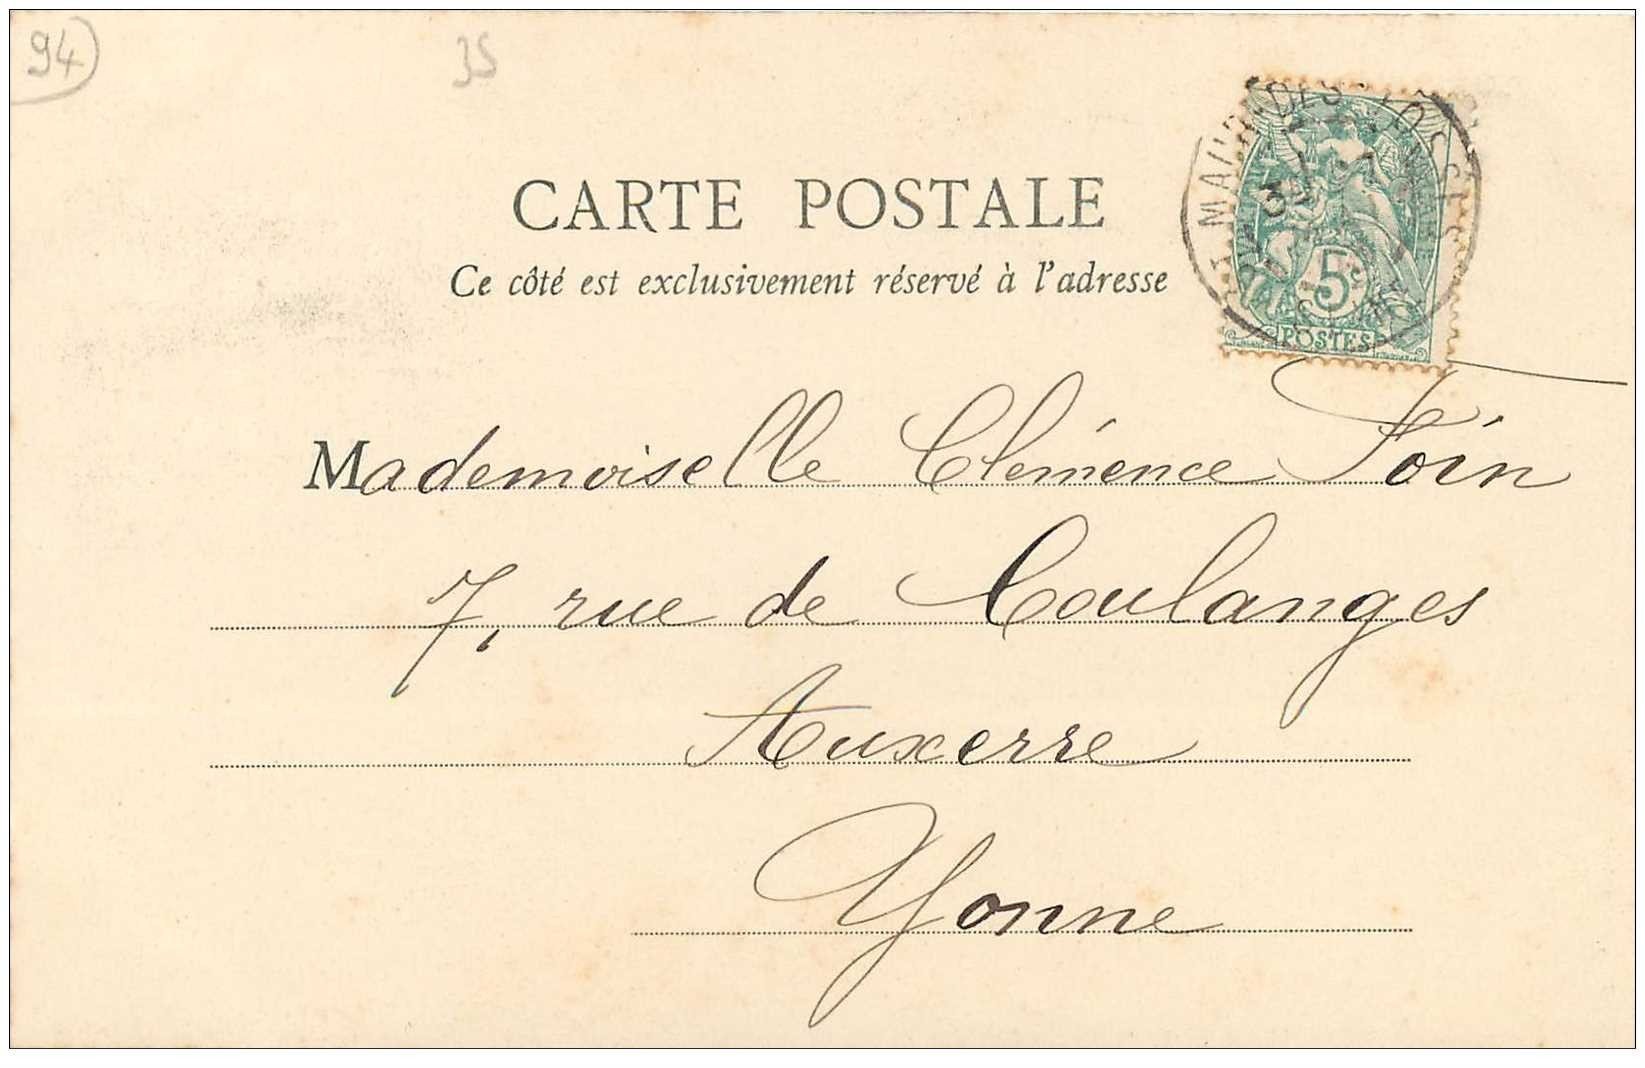 94)
35
CARTE POSTALE
Ce côté est exclusivement réservé à l'adresse
ST MAUR-DES-FOSSES
5
POSTES
Mademoiselle Clémence Foin
7, rue de Coulanges
Auxerre
Yonne